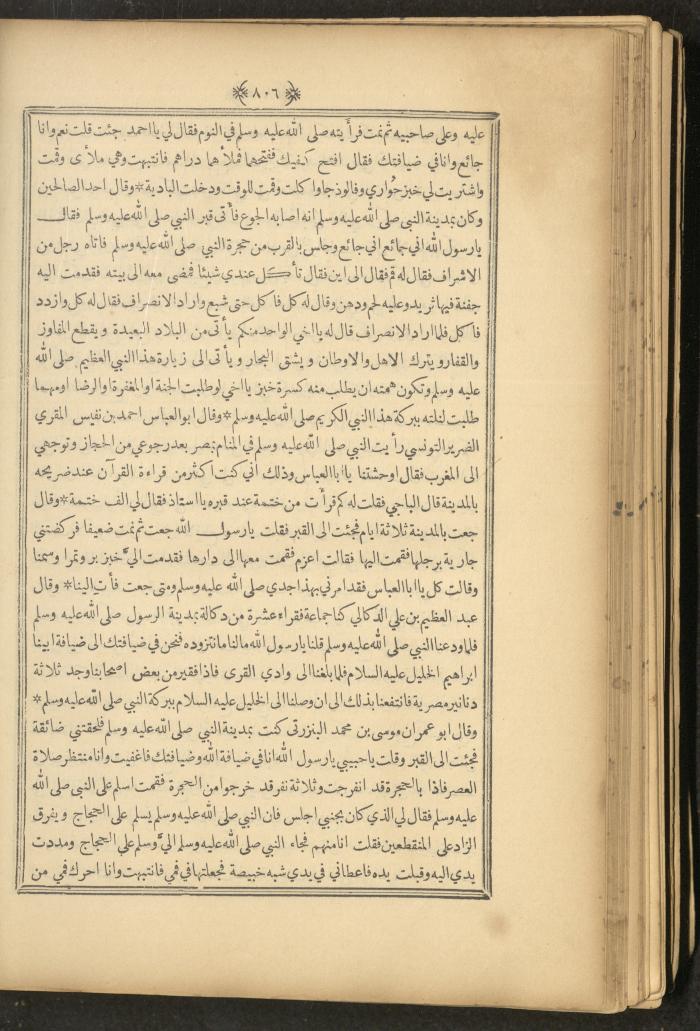 ٨٠٦
عليه وعلى صاحبيه ثم نمت فرأيته صلى الله عليه وسلم في النوم فقال لي يا احمد جئت قلت نعم وانا
جائع وانا في ضيافتك فقال افتح كفيك ففتحهما فملأهما دراهم فانتبهت وهي ملأى وقمت
واشتريت لي خبز حُوّاري وفالوذجا واكلت وقمت للوقت ودخلت البادية * وقال احد الصالحين
وكان بمدينة النبي صلى الله عليه وسلم انه اصابه الجوع فأتى قبر النبي صلى الله عليه وسلم فقال
يا رسول الله اني جائع اني جائع وجلس بالقرب من حجرة النبي صلى الله عليه وسلم فاتاه رجل من
الاشراف فقال له قم فقال الى اين فقال تأكل عندي شيئا فمضى معه الى بيته فقدمت اليه
جفنة فيها ثريد وعليه لحم ودهن وقال له كل فاكل حتى شبع واراد الانصراف فقال له كل وازدد
فاكل فلما اراد الانصراف قال له يا اخي الواحد منكم يأتى من البلاد البعيدة ويقطع المفاوز
والقفار ويترك الاهل والاوطان ويشق البحار ويأتى الى زيارة هذا النبي العظيم صلى الله
عليه وسلم وتكون همته ان يطلب منه كسرة خبز يا اخي لو طلبت الجنة او المغفرة والرضا او مهما
طلبت لنلته ببركة هذا النبي الكريم صلى الله عليه وسلم * وقال ابو العباس احمد بن نفيس المقري
الضرير التونسي رأيت النبي صلى الله عليه وسلم في المنام بمصر بعد رجوعي من الحجاز وتوجهي
الى المغرب فقال اوحشتنا يا ابا العباس وذلك أني كنت اكثر من قراءة القرآن عند ضريحه
بالمدينة قال الباجي فقلت له كم قرأت من ختمة عند قبره يا استاذ فقال لي الف ختمة * وقال
جعت بالمدينة ثلاثة ايام فجئت الى القبر فقلت يا رسول الله جعت ثم نمت ضعيفا فركضتني
جارية برجلها فقمت اليها فقالت اعزم فقمت معها الى دارها فقدمت اليّ خبز بر وتمرا وسمنا
وقالت كل يا ابا العباس فقد امرني بهذا جدي صلى الله عليه وسلم ومتى جعت فأت إلينا * وقال
عبد العظيم بن علي الدكالي كنا جماعة فقراء عشرة من دكالة بمدينة الرسول صلى الله عليه وسلم
فلما ودعنا النبي صلى الله عليه وسلم قلنا يا رسول الله ما لنا ما نتزوده فنحن في ضيافتك الى ضيافة ابينا
ابراهيم الخليل عليه السلام فلما بلغنا الى وادي القرى فاذا فقير من بعض اصحابنا وجد ثلاثة
دنانير مصرية فانتفعنا بذلك الى ان وصلنا الى الخليل عليه السلام ببركة النبي صلى الله عليه وسلم *
وقال ابو عمران موسى بن محمد البنزرتى كنت بمدينة النبي صلى الله عليه وسلم فلحقتني ضائقة
فجئت الى القبر وقلت يا حبيبي يا رسول الله انا في ضيافة الله وضيافتك فاغفيت وانا منتظر صلاة
العصر فاذا بالحجرة قد انفرجت وثلاثة نفر قد خرجوا من الحجرة فقمت اسلم على النبي صلى الله
عليه وسلم فقال لي الذي كان بجنبي اجلس فان النبي صلى الله عليه وسلم يسلم على الحجاج ويفرق
الزاد على المنقطعين فقلت انا منهم فجاء النبي صلى الله عليه وسلم اليّ وسلم على الحجاج ومددت
يدي اليه وقبلت يده فاعطاني في يدي شبه خبيصة فجعلتها في فمي فانتبهت وانا احرك فمي من